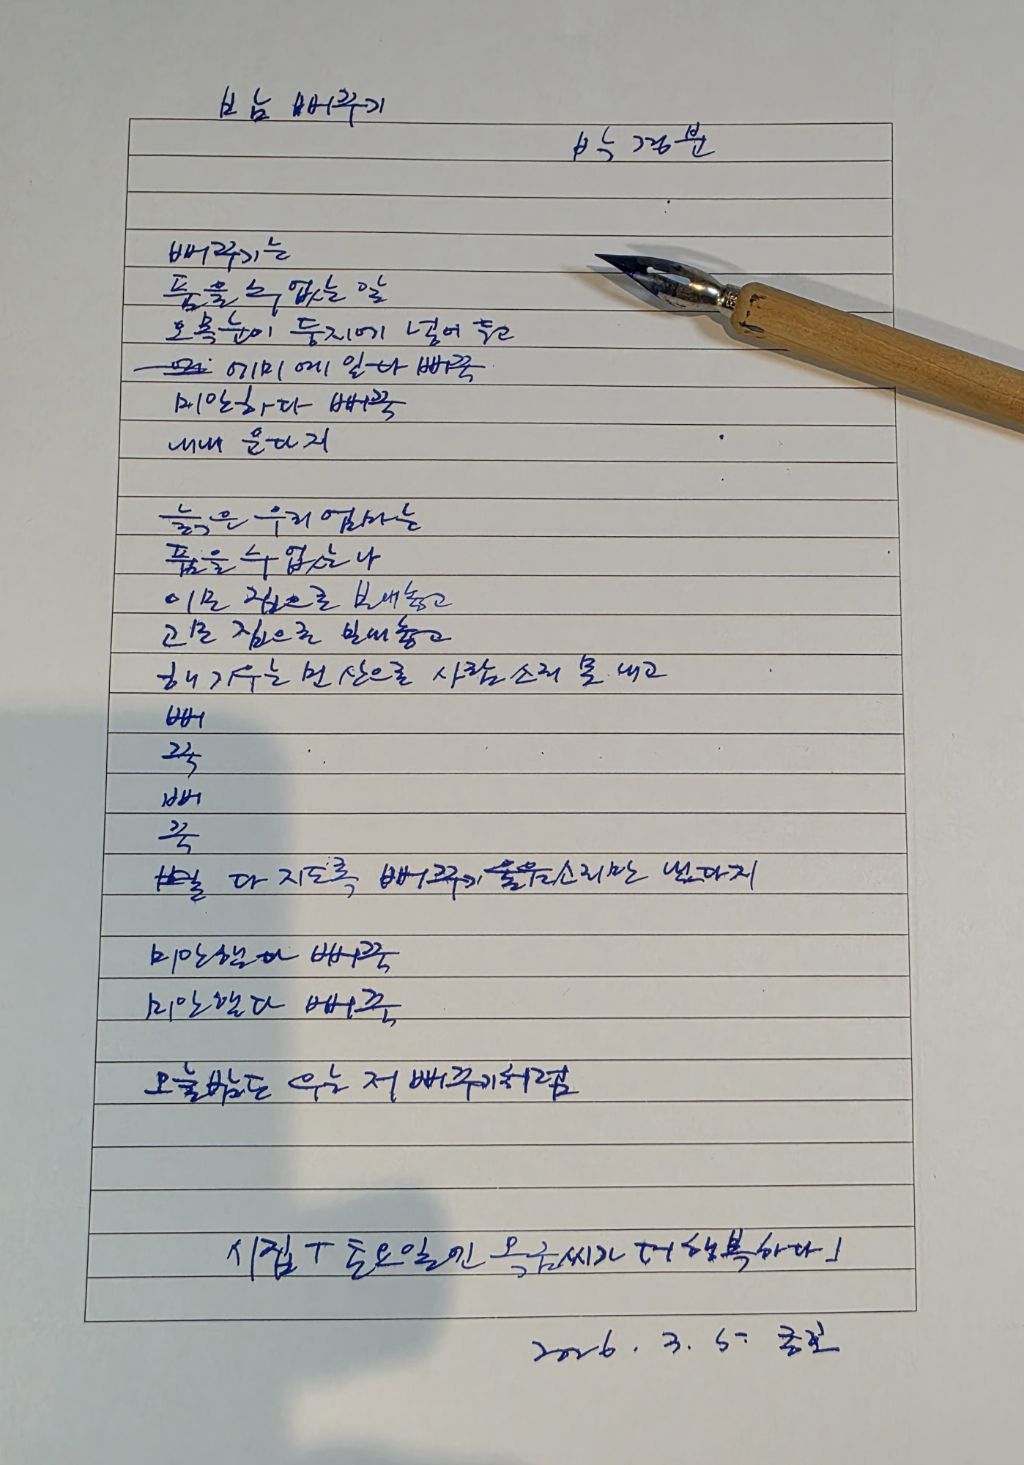 봄밤 뻐꾸기
박경분
뻐꾸기는
품을 수 없는 알
오목눈이 둥지에 넣어 두고
에미 에 일다 뻐꾹
미안하다 뻐꾹
내내 운다지
늙은 우리 엄마는
품을 수 없는 나
이모 집으로 보내놓고
고모 집으로 보내놓고
해 기우는 먼 산으로 사람 소리 못 내고
뻐
꾹
뻐
꾹
별 다 지도록 뻐꾸기 울음소리만 낸다지
미안했다 뻐꾹
미안했다 뻐꾹
오늘밤도 우는 저 뻐꾸기처럼
시집 「토요일엔 옥금씨가 더 행복하다」
2026. 3. 5